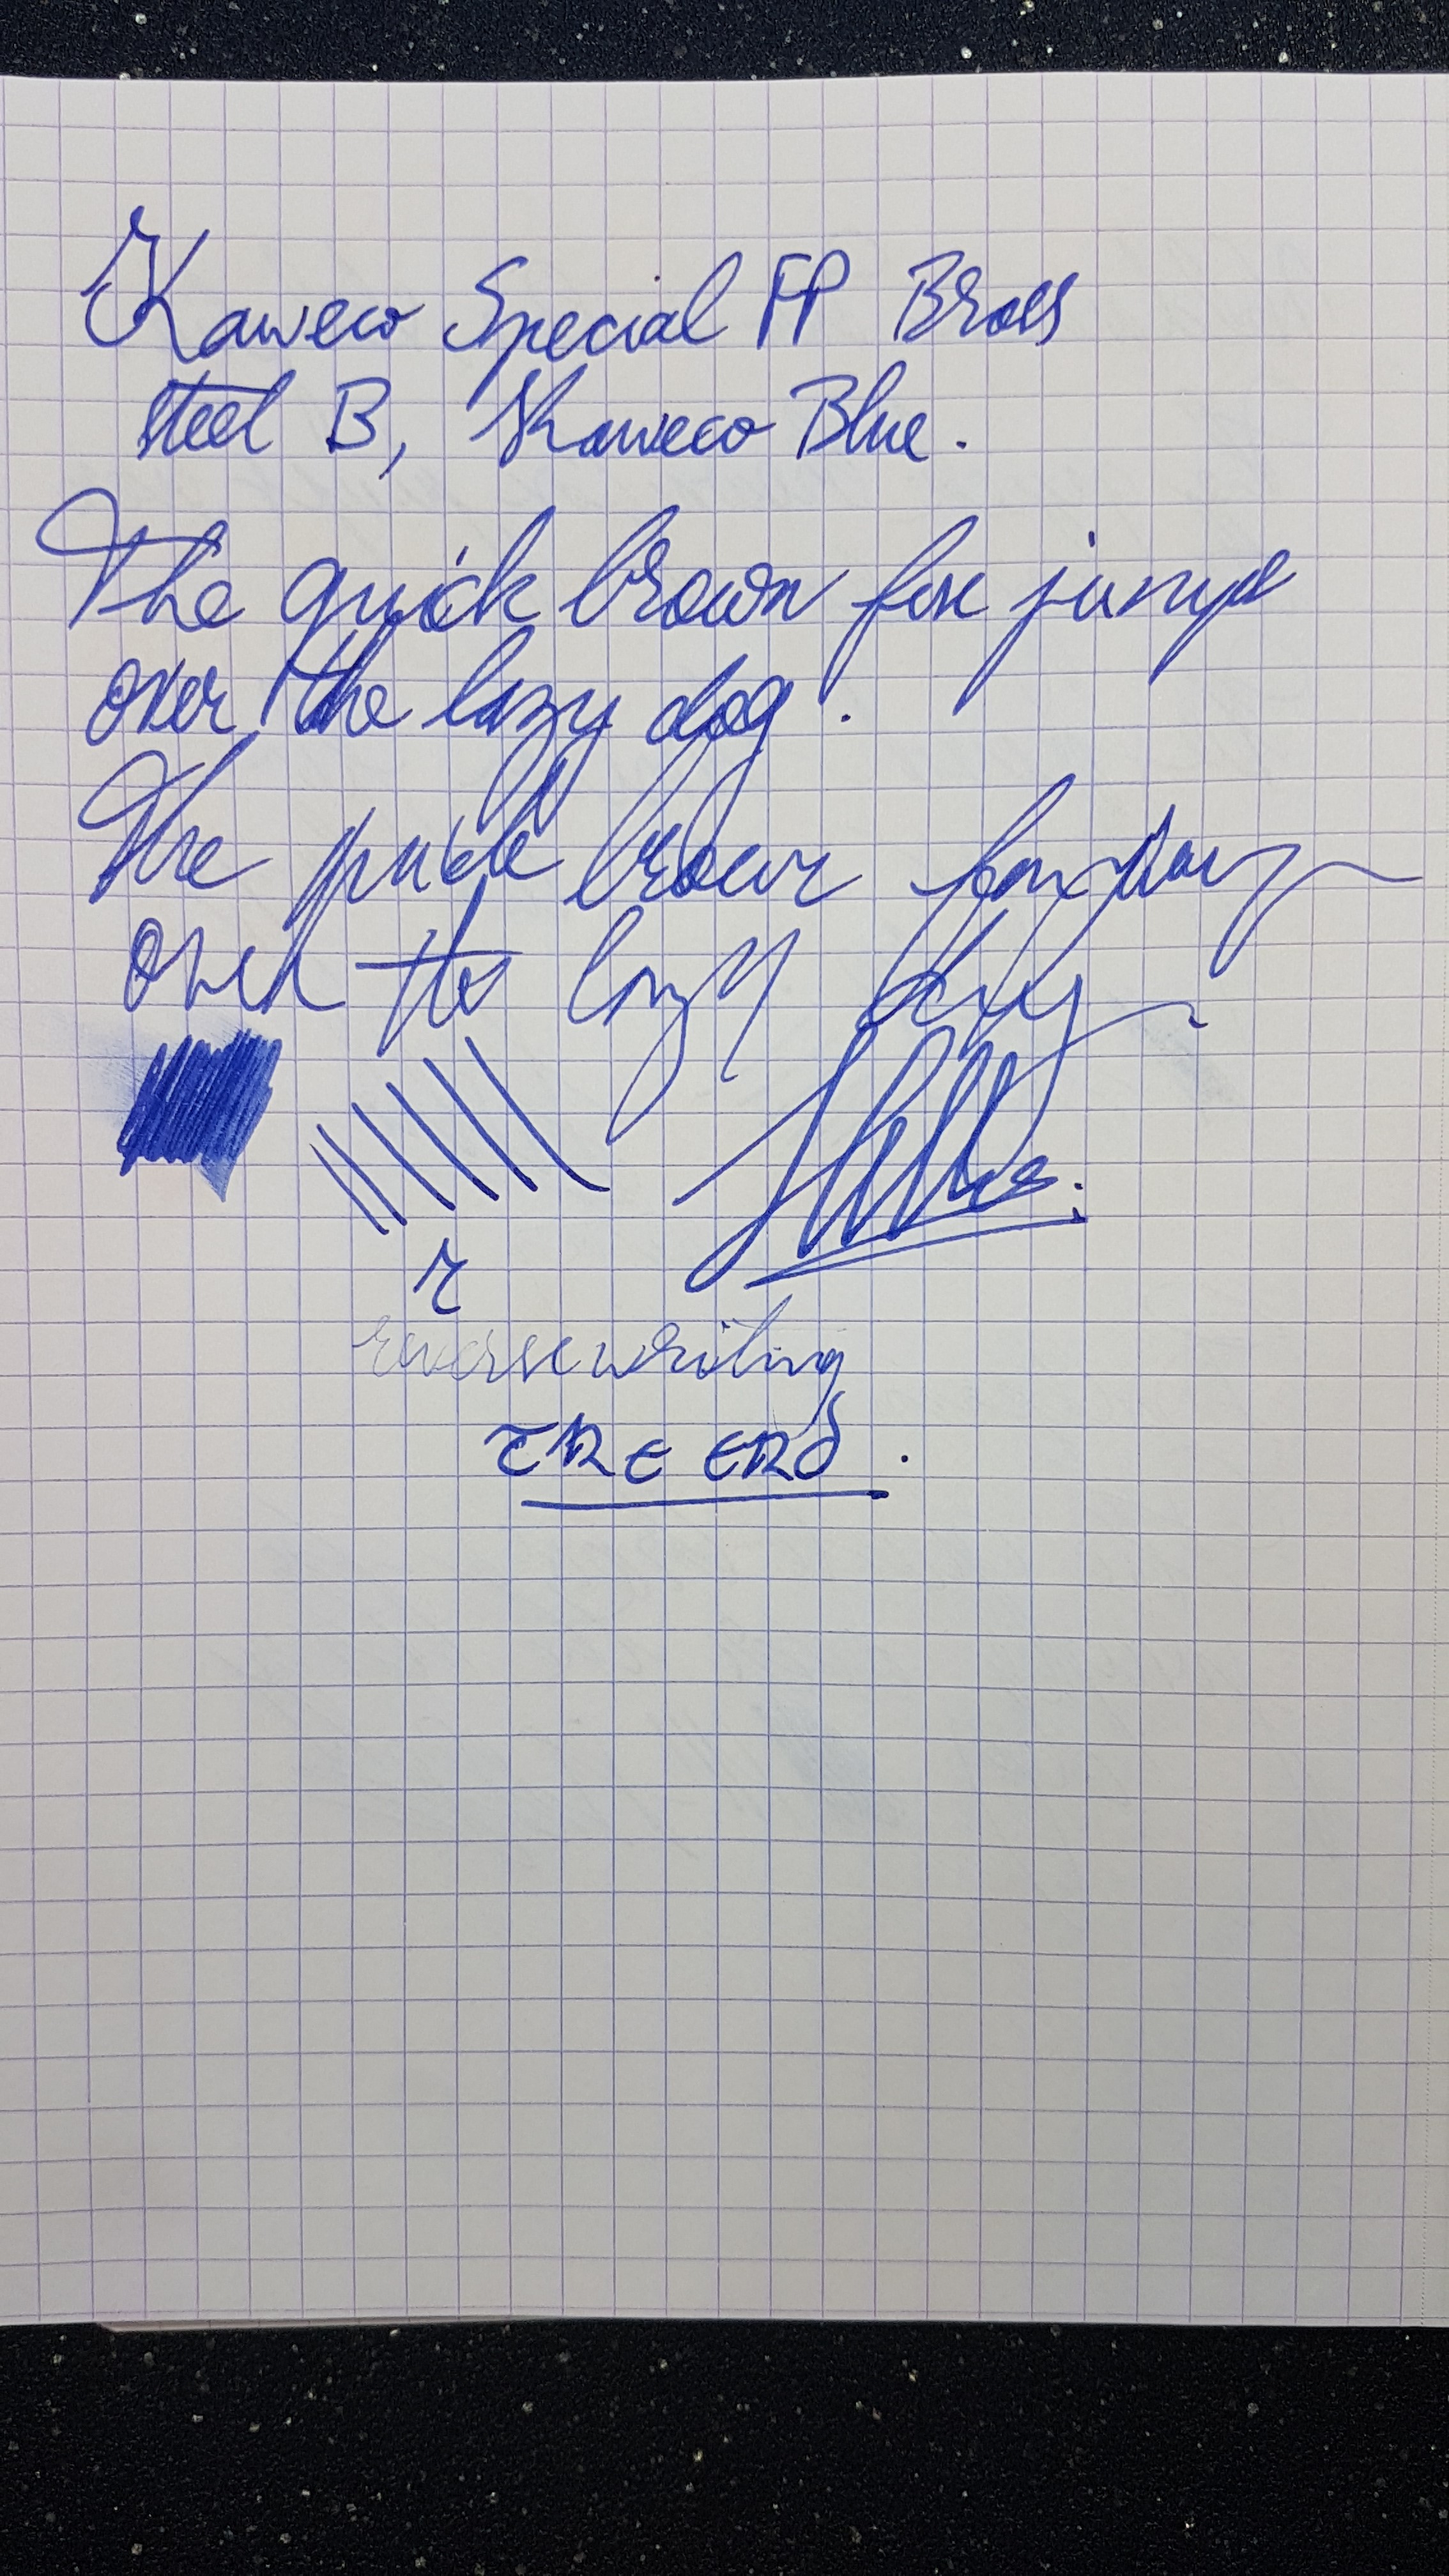 Kaweco Special FP Brass
steel B, Kaweco Blue.
The quick brown fox jumps
over the lazy dog.
The quick brown fox
over the lazy dog
r
reverse writing
THE END.